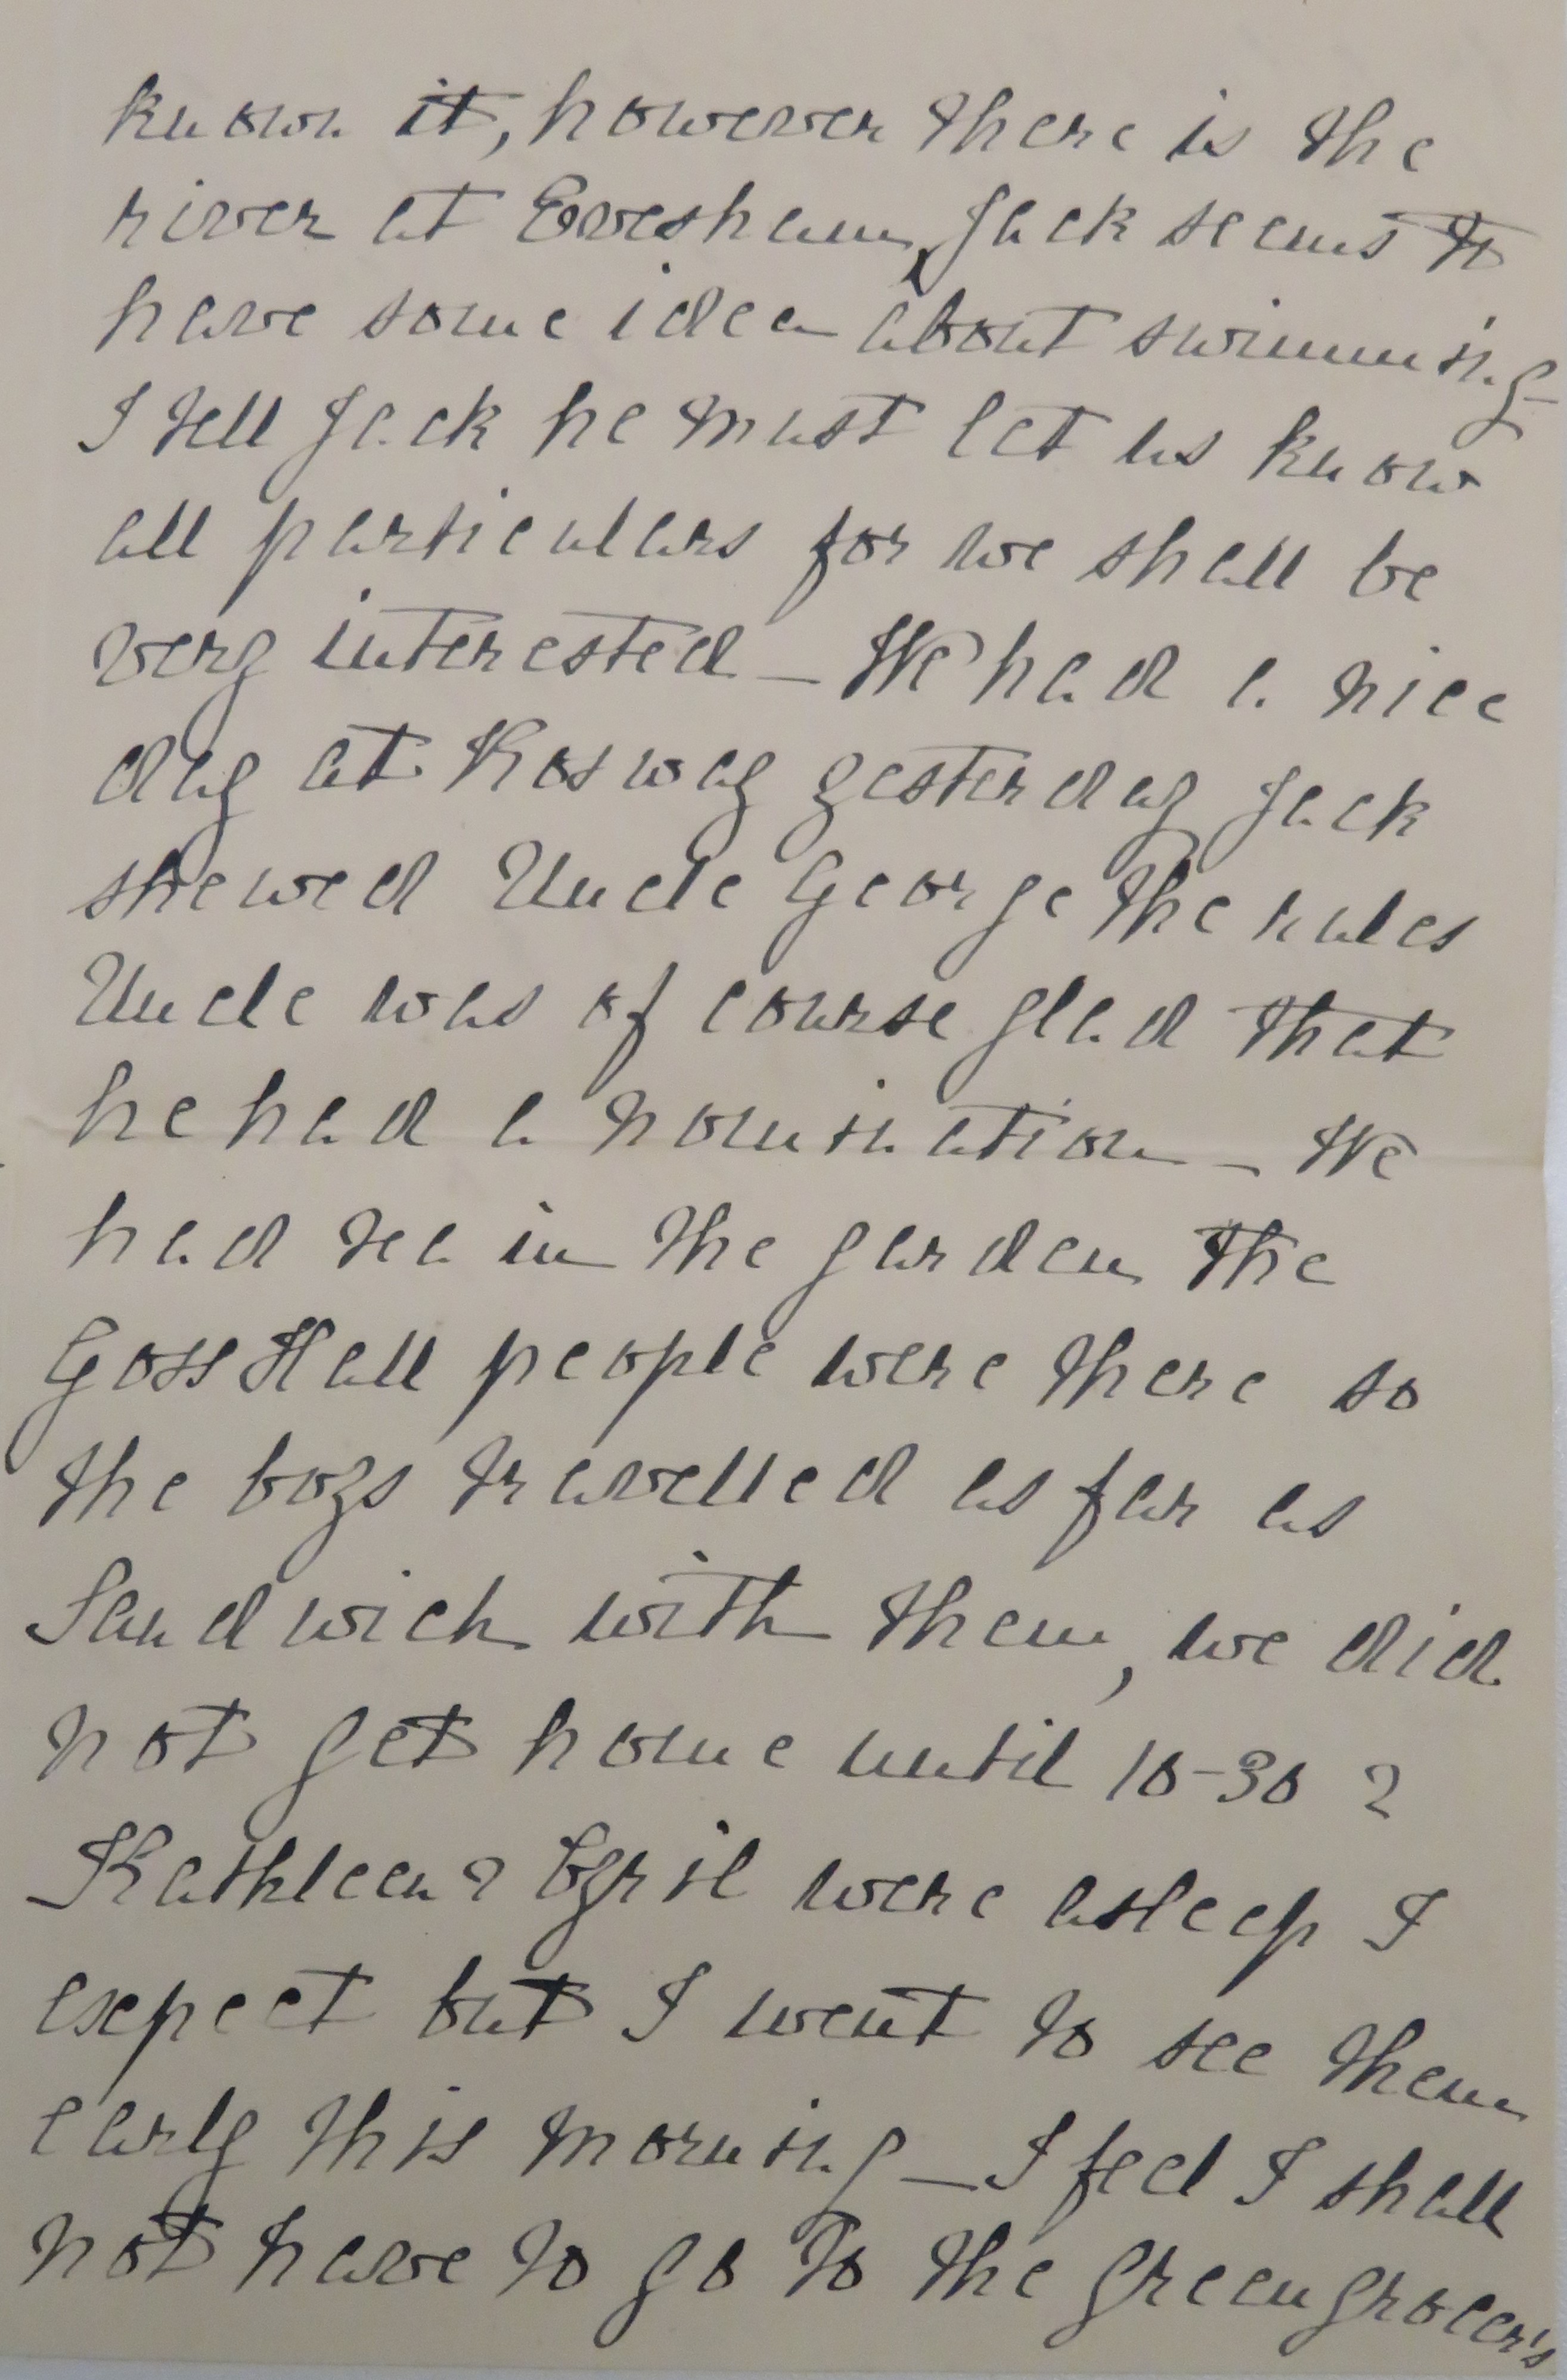 know it, however there is the
river at Evesham, Jack seems to
have some idea about swimming
I tell Jack he must let us know
all particulars for we shall be
very interested – We had a nice
day at Rosway yesterday Jack
shewed Uncle George the rules
Uncle was of course glad that
he had a nomination – We
had tea in the garden the
Goss Hall people were there so
the boys travelled as far as
Sandwich with them, we did
not get home until 10-30 &
Kathleen & Cyril were asleep I
expect but I went to see them
early this morning – I feel I shall
not have to go to the greengrocer's